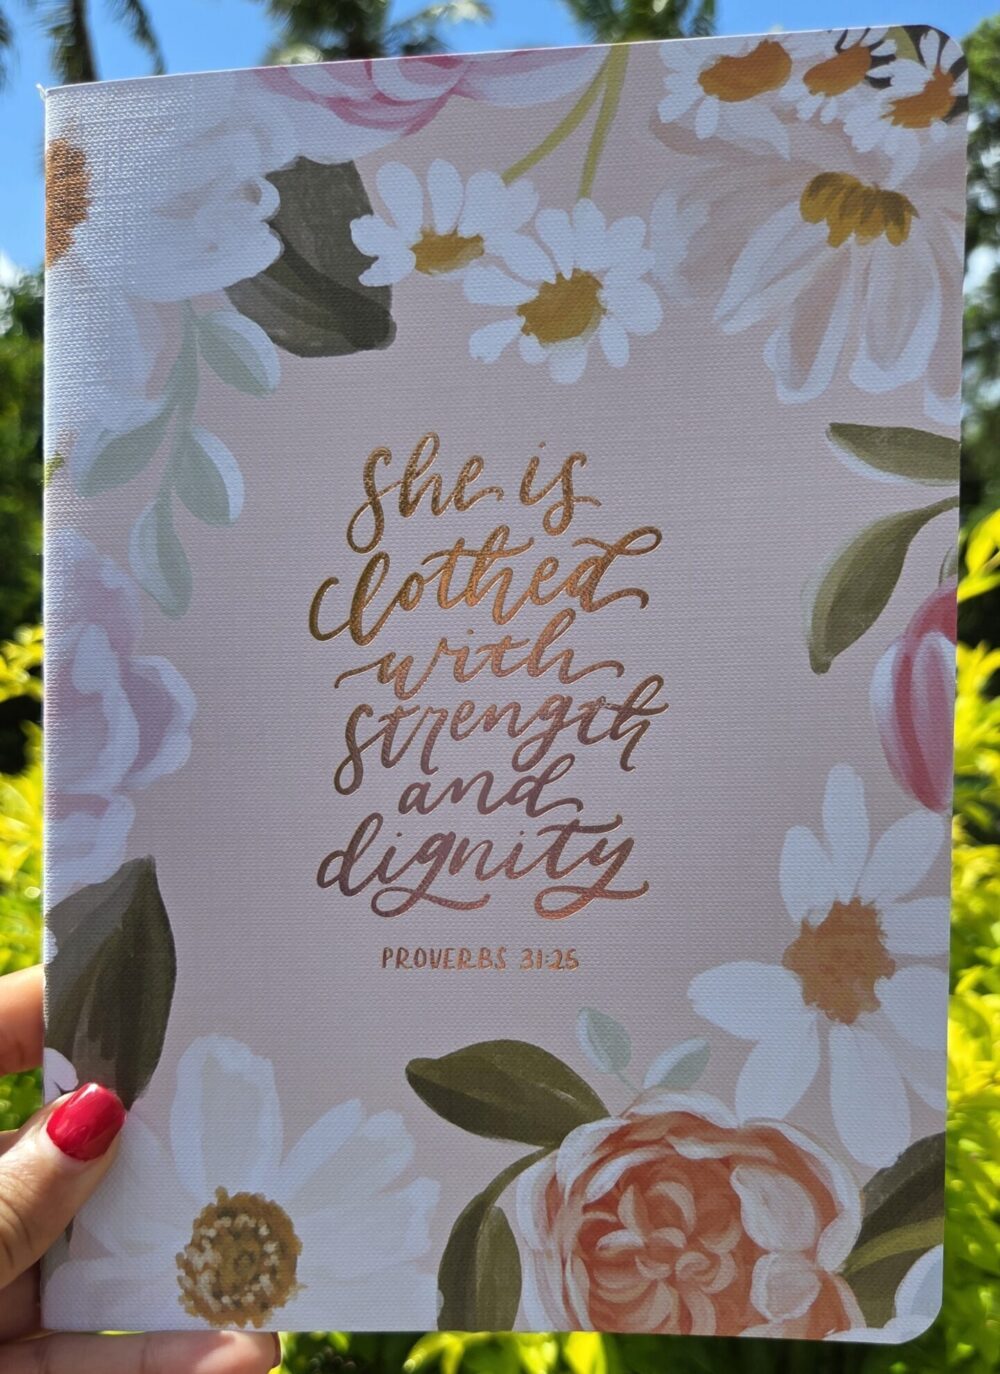 She is
clothed
with
strength
and
dignity
PROVERBS 31:25